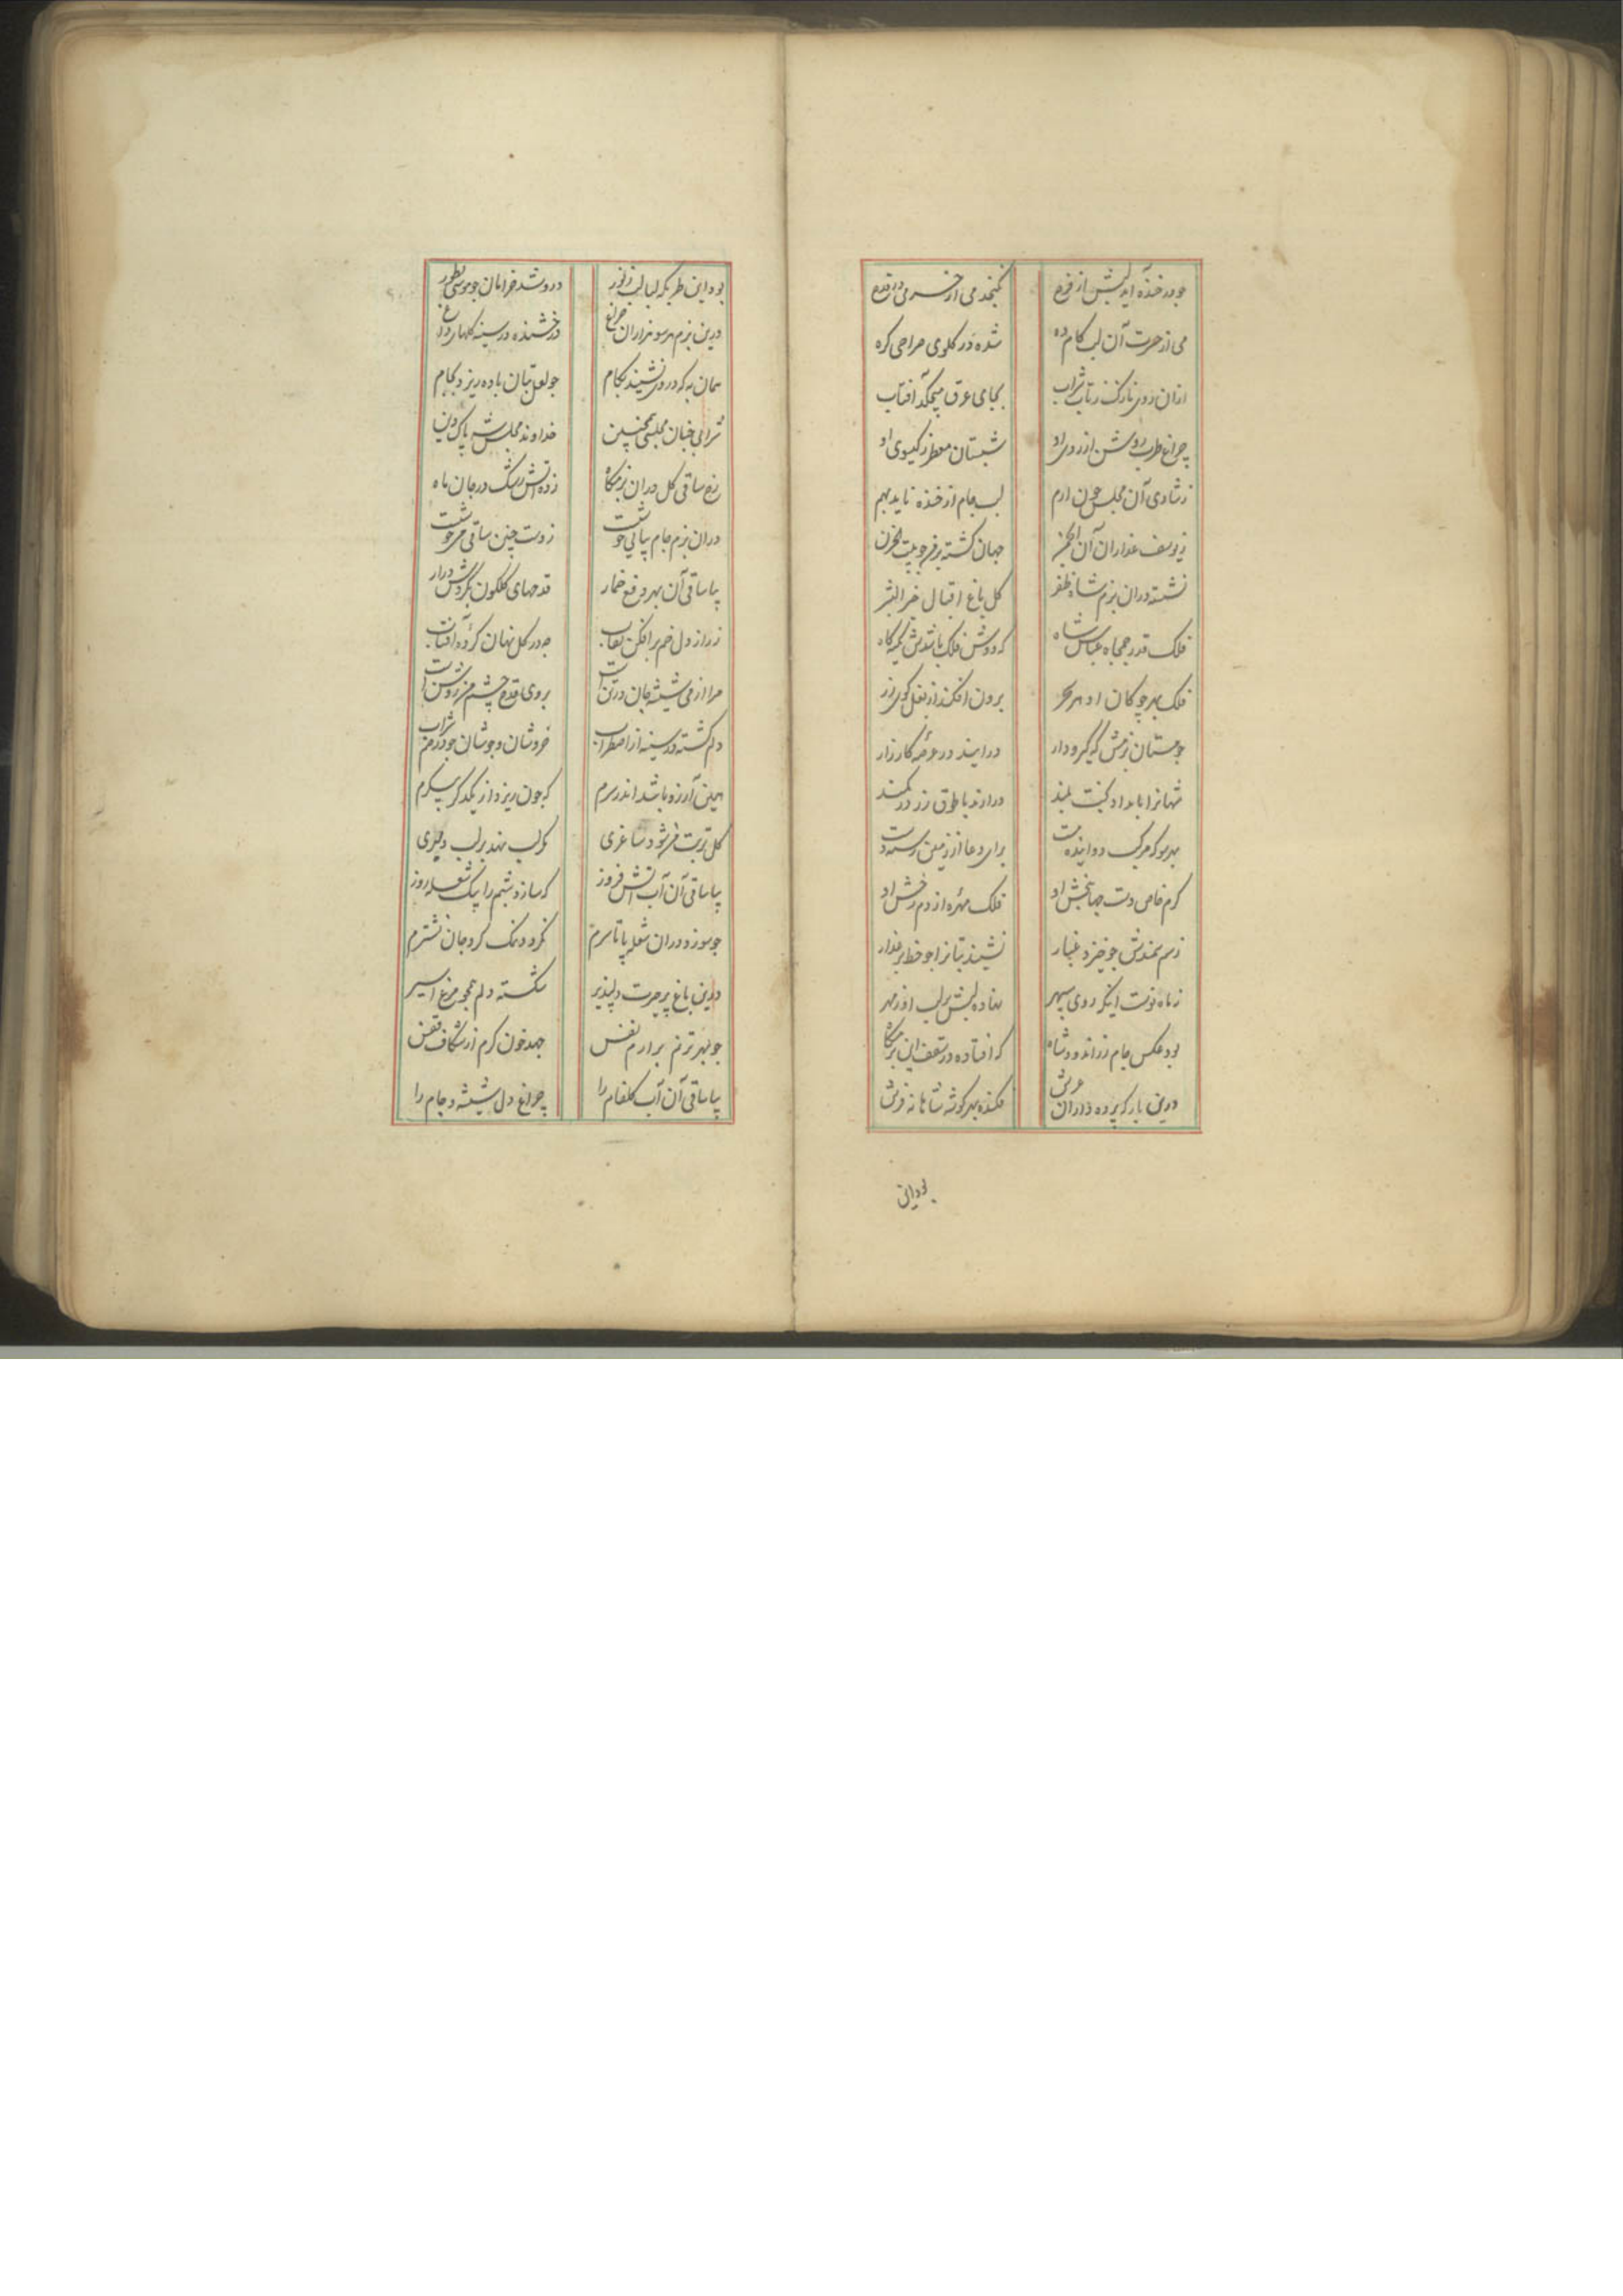 چو در خنده آید لبش از فرح نگنجد می از خرمی در قدح
می از حسرت آن لب کام ده شده در گلوی صراحی گره
ازان روی نازک ز تاب شراب بجای عرق میچکد آفتاب
چراغ طرب روشن از روی او شبستان معطر ز گیسوی او
ز شادی آن مجلس چون ارم لب جام از خنده ناید بهم
ز یوسف عذاران آن انجمن جهان گشته پر فرح بیت الحزن
نشسته دران بزم شاه ظفر گل باغ اقبال خیر البشر
فلک قدر جمجاه عباس شاه که دوش فلک باشدش تکیه گاه
فلک بهر چوگان او هر سحر برون افکند از بغل گوی زر
چو مستان بزمش گه گیر و دار در آیند در عرصه کارزار
شهانرا بامداد بخت بلند در آرند با طوق زر در کمند
بهر سو که مرکب دوانیده است برای دعا از زمین رسته دست
کرم خاص دست جهانبخش او فلک مهره از دم رخش او
ز سم سمندش چو خیزد غبار نشیند بتانرا چو خط بر عذار
ز ماه نوست اینکه روی سپهر نهاده لبش بر لب از مهر
بود عکس جام زر اندود شاه که افتاده در سقف این بزمگاه
درین بارگه پرده داران عرش فکنده بهر گوشه شاهانه فرش
بود این
بود این طربگه لبالب ز نور درو شد خرامان چو موسی بطور
درین بزم هر سو هزاران چراغ درخشنده در سینه گلهای داغ
همان به که در وی نشیند بکام چو لعل بتان باده ریزد بجام
شرابی چنان مجلسی همچنین خداوند مجلس شه پاک دین
رخ ساقی گل دران بزمگاه زده آتش رشک در جان ماه
دران بزم جام پیاپی خوشست ز دست چنین ساقی می خوشست
بیا ساقی آن بهر دفع خمار قدحهای گلگون بگردش درآر
ز راز دل خم برافکن نقاب چه در گل نهان کرده آفتاب
مرا از می شیشه جان در تن است بروی قدح چشم من روشن است
دلم گشته در سینه از اضطراب خروشان و جوشان چو در خم شراب
همین آرزو باشد اندر سرم که چون ریزد از یکدگر پیکرم
گل تربتم شود ساغری که لب نهد بر لب دلبری
بیا ساقی آن آب آتش فروز که سازد شبم را بیک شعله روز
چو سوزد دران شعله پا تا سرم نگردد نمک گرد جان نشترم
درین باغ پر حسرت دلپذیر شکسته دلم همچو مرغ اسیر
چو بهر ترنم برارم نفس جهد خون گرم از شکاف قفس
بیا ساقی آن آب گلفام را چراغ دل شیشه و جام را